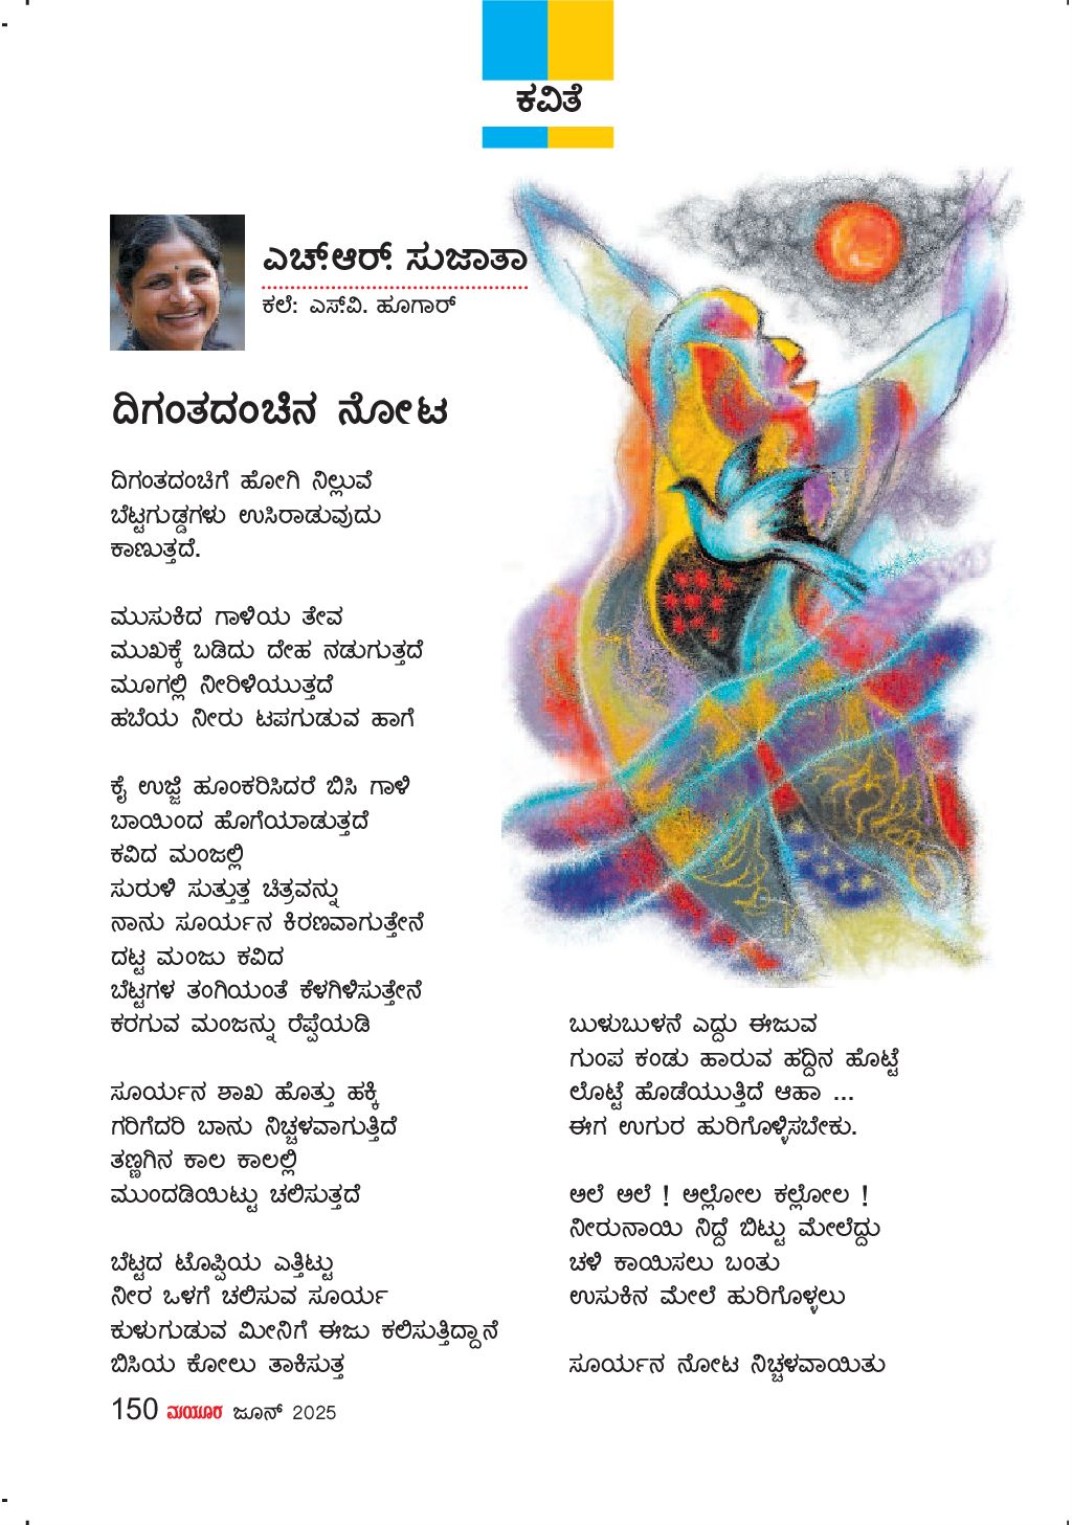 ಕವಿತೆ
ಎಚ್.ಆರ್. ಸುಜಾತಾ
ಕಲೆ: ಎಸ್.ವಿ. ಹೂಗಾರ್
ದಿಗಂತದಂಚಿನ ನೋಟ
ದಿಗಂತದಂಚಿಗೆ ಹೋಗಿ ನಿಲ್ಲುವೆ
ಬೆಟ್ಟಗುಡ್ಡಗಳು ಉಸಿರಾಡುವುದು
ಕಾಣುತ್ತದೆ.
ಮುಸುಕಿದ ಗಾಳಿಯ ತೇವ
ಮುಖಕ್ಕೆ ಬಡಿದು ದೇಹ ನಡುಗುತ್ತದೆ
ಮೂಗಲ್ಲಿ ನೀರಿಳಿಯುತ್ತದೆ
ಹಬೆಯ ನೀರು ಟಪಗುಡುವ ಹಾಗೆ
ಕೈ ಉಜ್ಜಿ ಹೂಂಕರಿಸಿದರೆ ಬಿಸಿ ಗಾಳಿ
ಬಾಯಿಂದ ಹೊಗೆಯಾಡುತ್ತದೆ
ಕವಿದ ಮಂಜಲ್ಲಿ
ಸುರುಳಿ ಸುತ್ತುತ್ತ ಚಿತ್ರವನ್ನು
ನಾನು ಸೂರ್ಯನ ಕಿರಣವಾಗುತ್ತೇನೆ
ದಟ್ಟ ಮಂಜು ಕವಿದ
ಬೆಟ್ಟಗಳ ತಂಗಿಯಂತೆ ಕೆಳಗಿಳಿಸುತ್ತೇನೆ
ಕರಗುವ ಮಂಜನ್ನು ರೆಪ್ಪೆಯಡಿ
ಸೂರ್ಯನ ಶಾಖ ಹೊತ್ತು ಹಕ್ಕಿ
ಗರಿಗೆದರಿ ಬಾನು ನಿಚ್ಚಳವಾಗುತ್ತಿದೆ
ತಣ್ಣಗಿನ ಕಾಲ ಕಾಲಲ್ಲಿ
ಮುಂದಡಿಯಿಟ್ಟು ಚಲಿಸುತ್ತದೆ
ಬೆಟ್ಟದ ಟೊಪ್ಪಿಯ ಎತ್ತಿಟ್ಟು
ನೀರ ಒಳಗೆ ಚಲಿಸುವ ಸೂರ್ಯ
ಕುಳುಗುಡುವ ಮೀನಿಗೆ ಈಜು ಕಲಿಸುತ್ತಿದ್ದಾನೆ
ಬಿಸಿಯ ಕೋಲು ತಾಕಿಸುತ್ತ
ಬುಳುಬುಳನೆ ಎದ್ದು ಈಜುವ
ಗುಂಪ ಕಂಡು ಹಾರುವ ಹದ್ದಿನ ಹೊಟ್ಟೆ
ಲೊಟ್ಟೆ ಹೊಡೆಯುತ್ತಿದೆ ಆಹಾ ...
ಈಗ ಉಗುರ ಹುರಿಗೊಳ್ಳಿಸಬೇಕು.
ಅಲೆ ಅಲೆ ! ಅಲ್ಲೋಲ ಕಲ್ಲೋಲ !
ನೀರುನಾಯಿ ನಿದ್ದೆ ಬಿಟ್ಟು ಮೇಲೆದ್ದು
ಚಳಿ ಕಾಯಿಸಲು ಬಂತು
ಉಸುಕಿನ ಮೇಲೆ ಹುರಿಗೊಳ್ಳಲು
ಸೂರ್ಯನ ನೋಟ ನಿಚ್ಚಳವಾಯಿತು
150 ಮಯೂರ ಜೂನ್ 2025